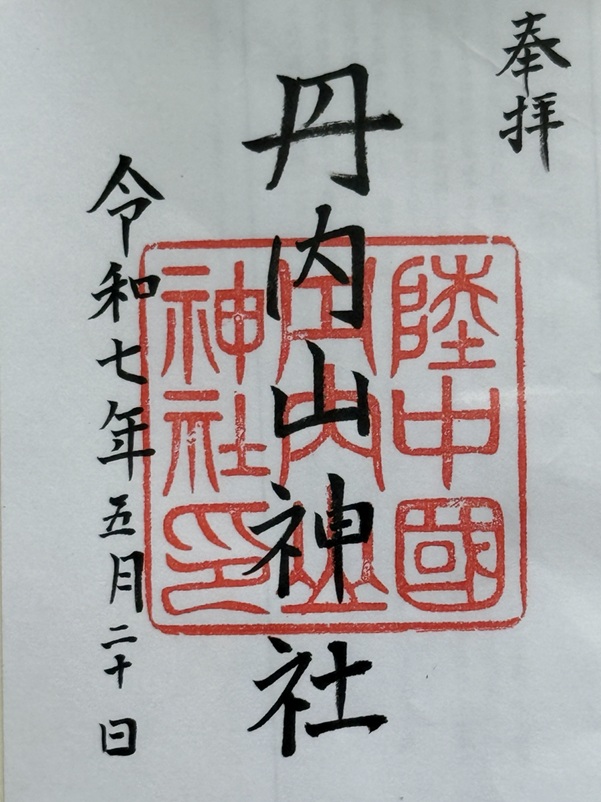 奉拝
丹内山神社
陸中國
丹内山
神社印
令和七年五月二十日